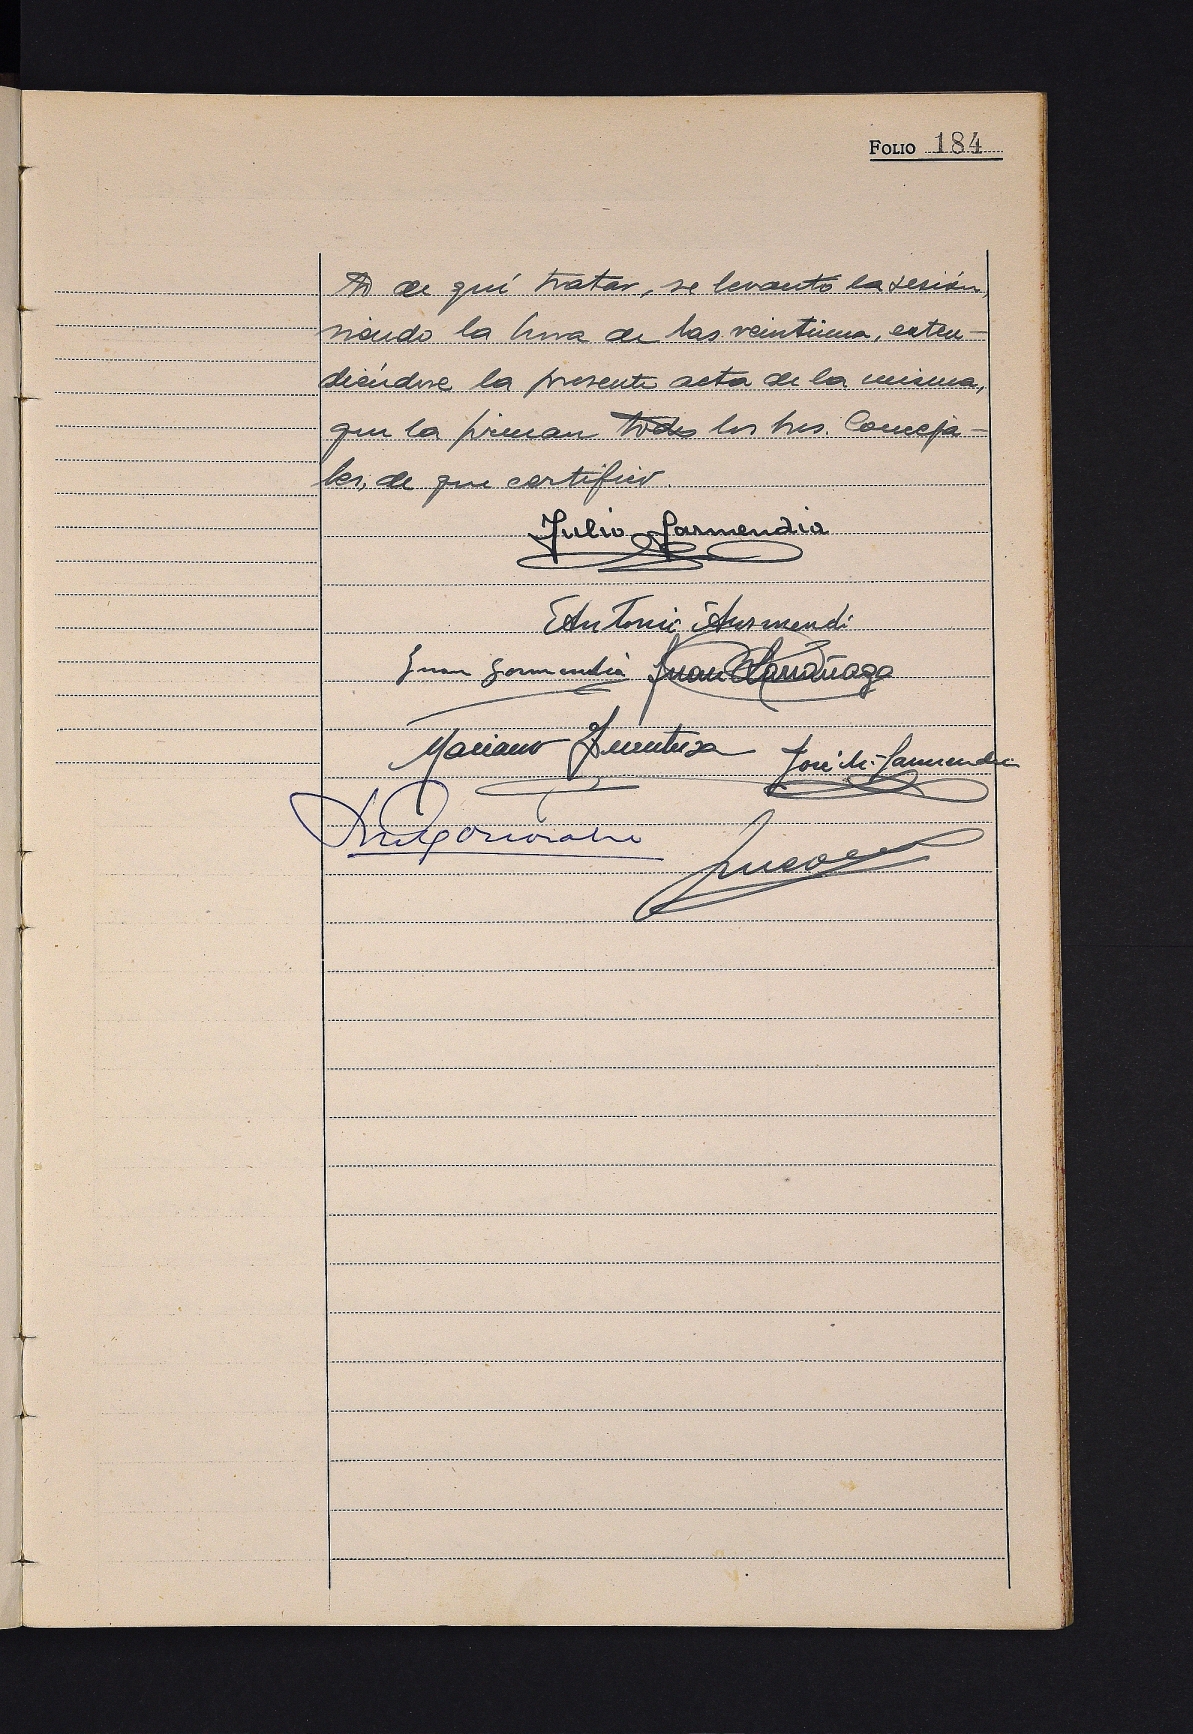 FOLIO 184
de qué tratar, se levantó la sesión,
siendo la hora de las veintiuna, exten-
diéndose la presente acta de la misma,
que la firman todos los Sres. Conceja-
les, de que certifico.
Julio Garmendia
Antonio
Juan Garmendia Juan Larrañaga
Mariano José M. Garmendia